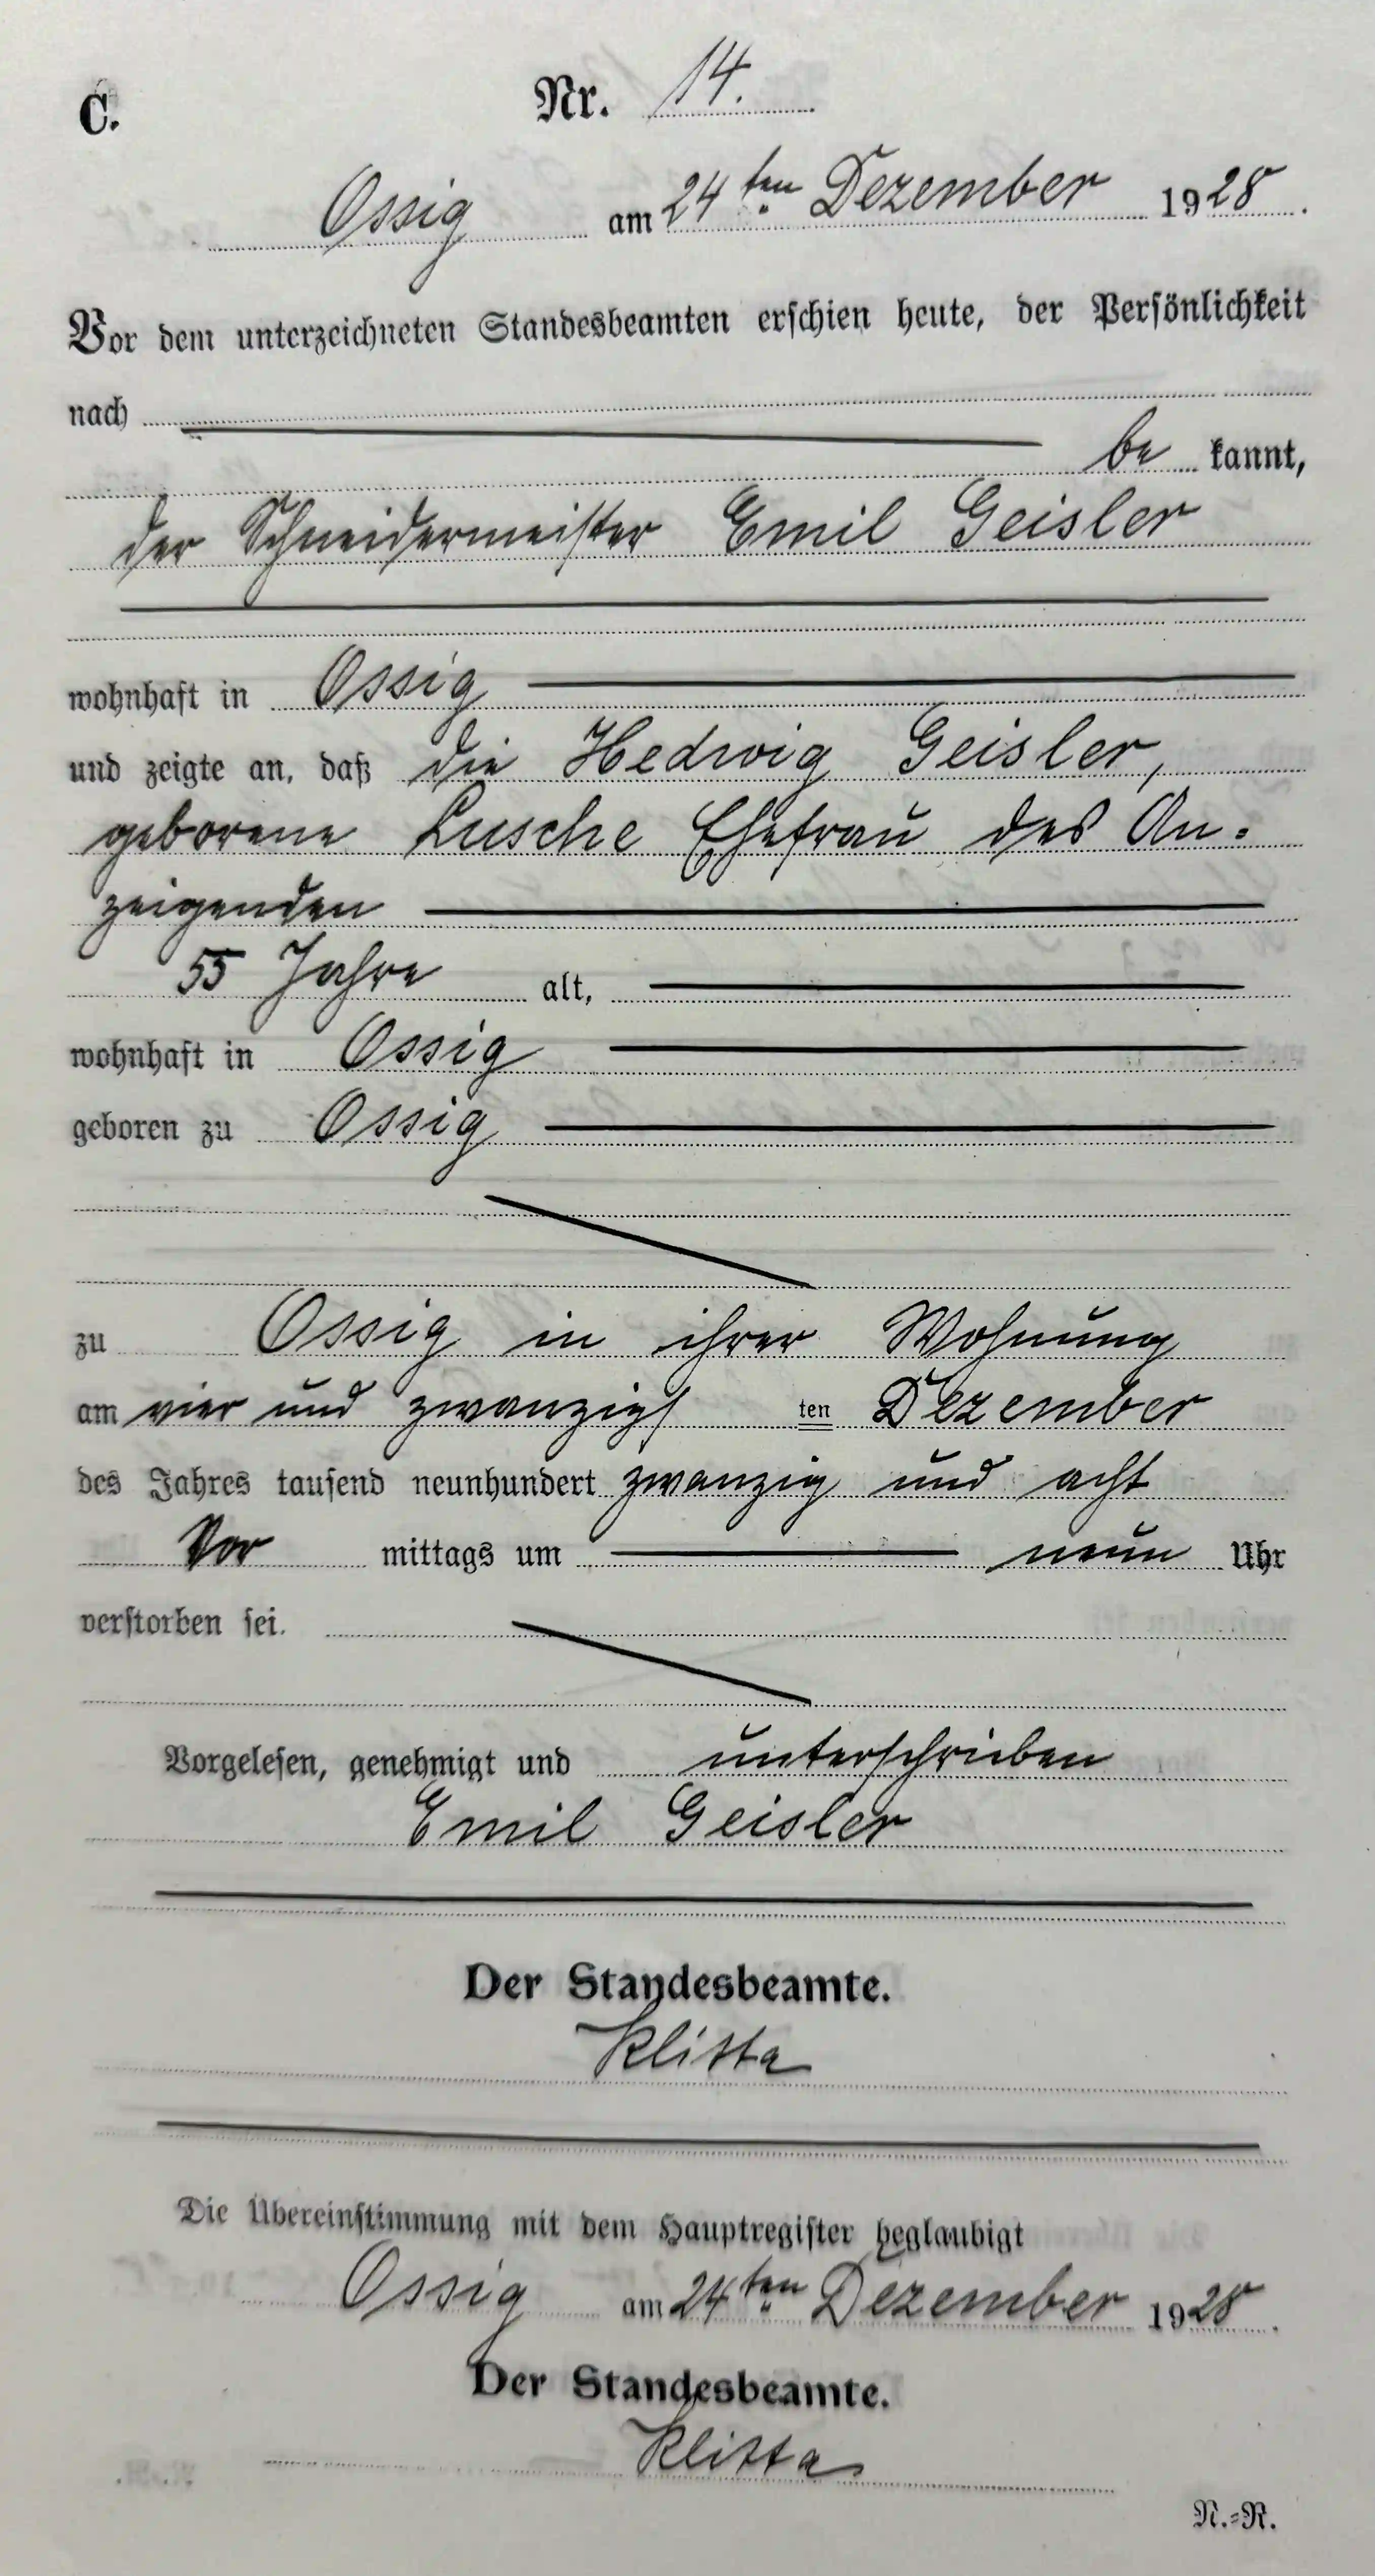 C. Nr. 14.
Ossig am 24ten Dezember 1928.
Vor dem unterzeichneten Standesbeamten erschien heute, der Persönlichkeit
nach
be kannt,
der Schneidermeister Emil Geisler
wohnhaft in Ossig
und zeigte an, daß die Hedwig Geisler,
geborene Lusche Ehefrau des An-
zeigenden
55 Jahre alt,
wohnhaft in Ossig
geboren zu Ossig
zu Ossig in ihrer Wohnung
am vier und zwanzigs ten Dezember
des Jahres tausend neunhundert zwanzig und acht
Vor mittags um neun Uhr
verstorben sei.
Vorgelesen, genehmigt und unterschrieben
Emil Geisler
Der Standesbeamte.
Die Übereinstimmung mit dem Hauptregister beglaubigt
Ossig am 24ten Dezember 1928.
Der Standesbeamte.
N.=R.